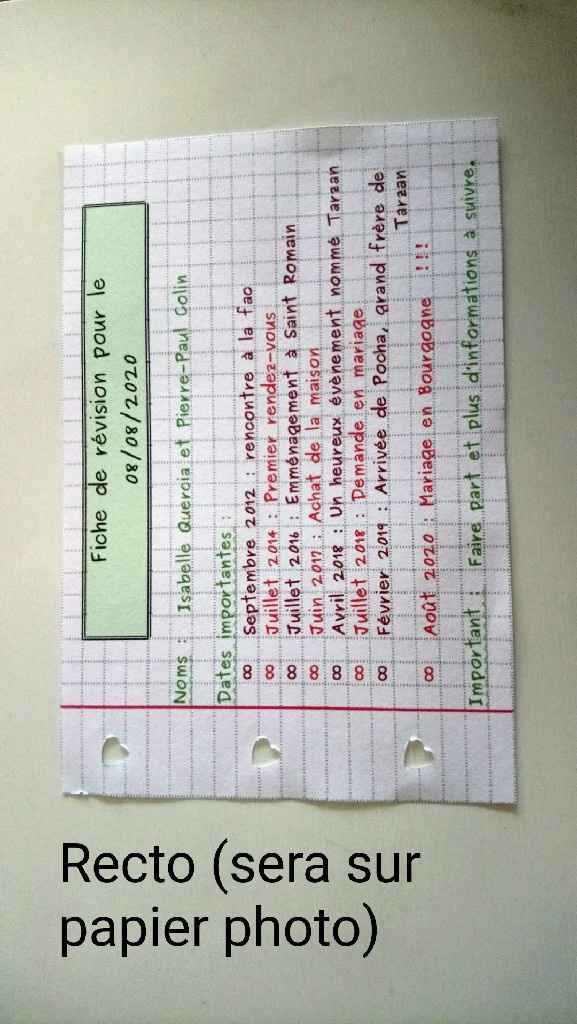 Fiche de révision pour le
08/08/2020
Noms : Isabelle Quercia et Pierre-Paul Colin
Dates importantes :
∞ Septembre 2012 : rencontre à la fac
∞ Juillet 2014 : Premier rendez-vous
∞ Juillet 2016 : Emménagement à Saint Romain
∞ Juin 2017 : Achat de la maison
∞ Avril 2018 : Un heureux évènement nommé Tarzan
∞ Juillet 2018 : Demande en mariage
∞ Février 2019 : Arrivée de Pocha, grand frère de
Tarzan
∞ Août 2020 : Mariage en Bourgogne !!!
Important : Faire part et plus d'informations à suivre.
Recto (sera sur
papier photo)